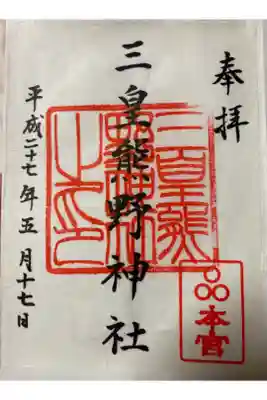 奉拝
三皇熊野神社
平成二十七年五月十七日
三皇熊
野神社
之印
本宮